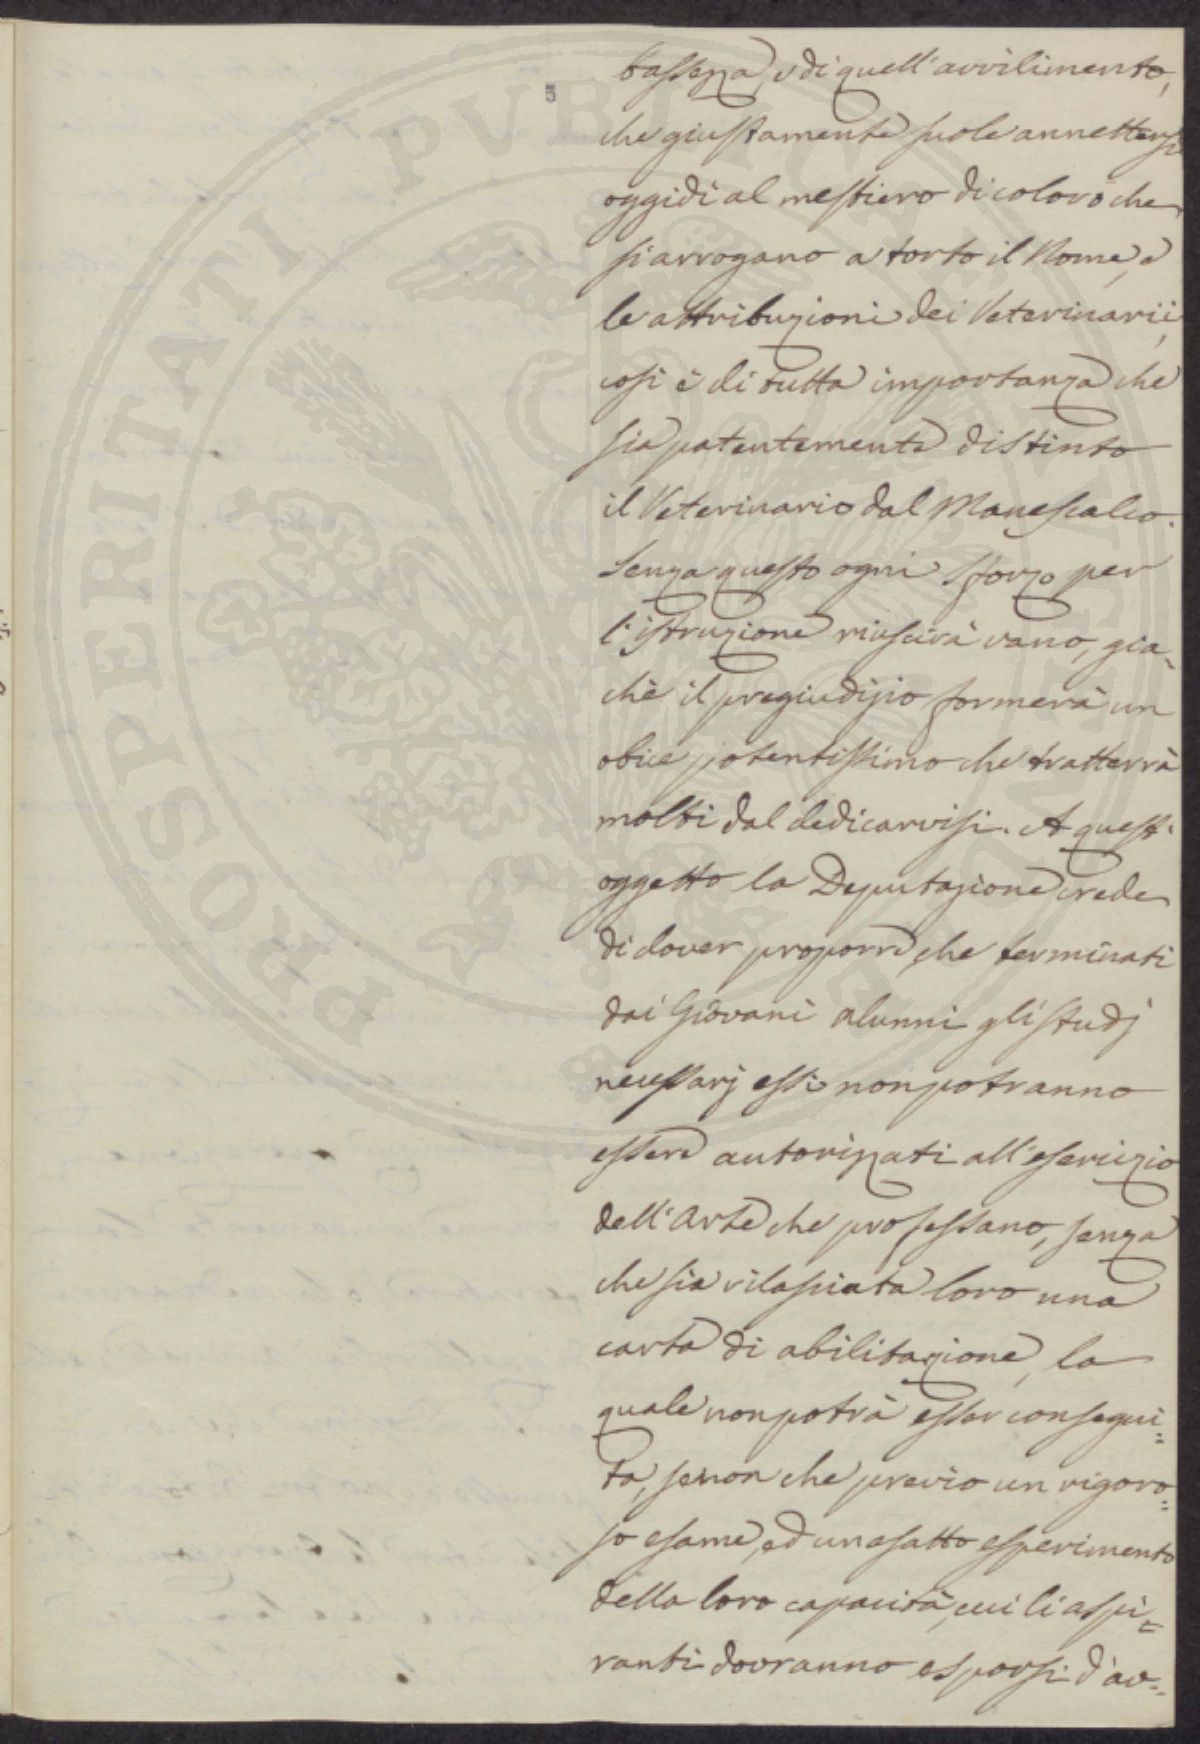 bassezza, e di quell'avvilimento,
che giustamente suole annettersi
oggidì al mestiero di coloro che
si arrogano a torto il Nome, e
le attribuzioni dei Veterinarii,
così è di tutta importanza che
sia patentemente distinto
il Veterinario dal Manescalco.
Senza questo ogni sforzo per
l'istruzione riuscirà vano, gia-
chè il pregiudizio formerà un
obice potentissimo che tratterrà
molti dal dedicarvisi. A quest'
oggetto la Deputazione crede
di dover proporre, che terminati
dai Giovani alunni gli studj
necessarj essi non potranno
essere autorizzati all'esercizio
dell'Arte che professano, senza
che sia rilasciata loro una
carta di abilitazione, la
quale non potrà esser consegui=
ta, senon che previo un rigoro=
so esame, ed un esatto esperimento
della loro capacità, cui li aspi=
ranti dovranno esporsi d'av=
PROSPERITATI PUBLICAE